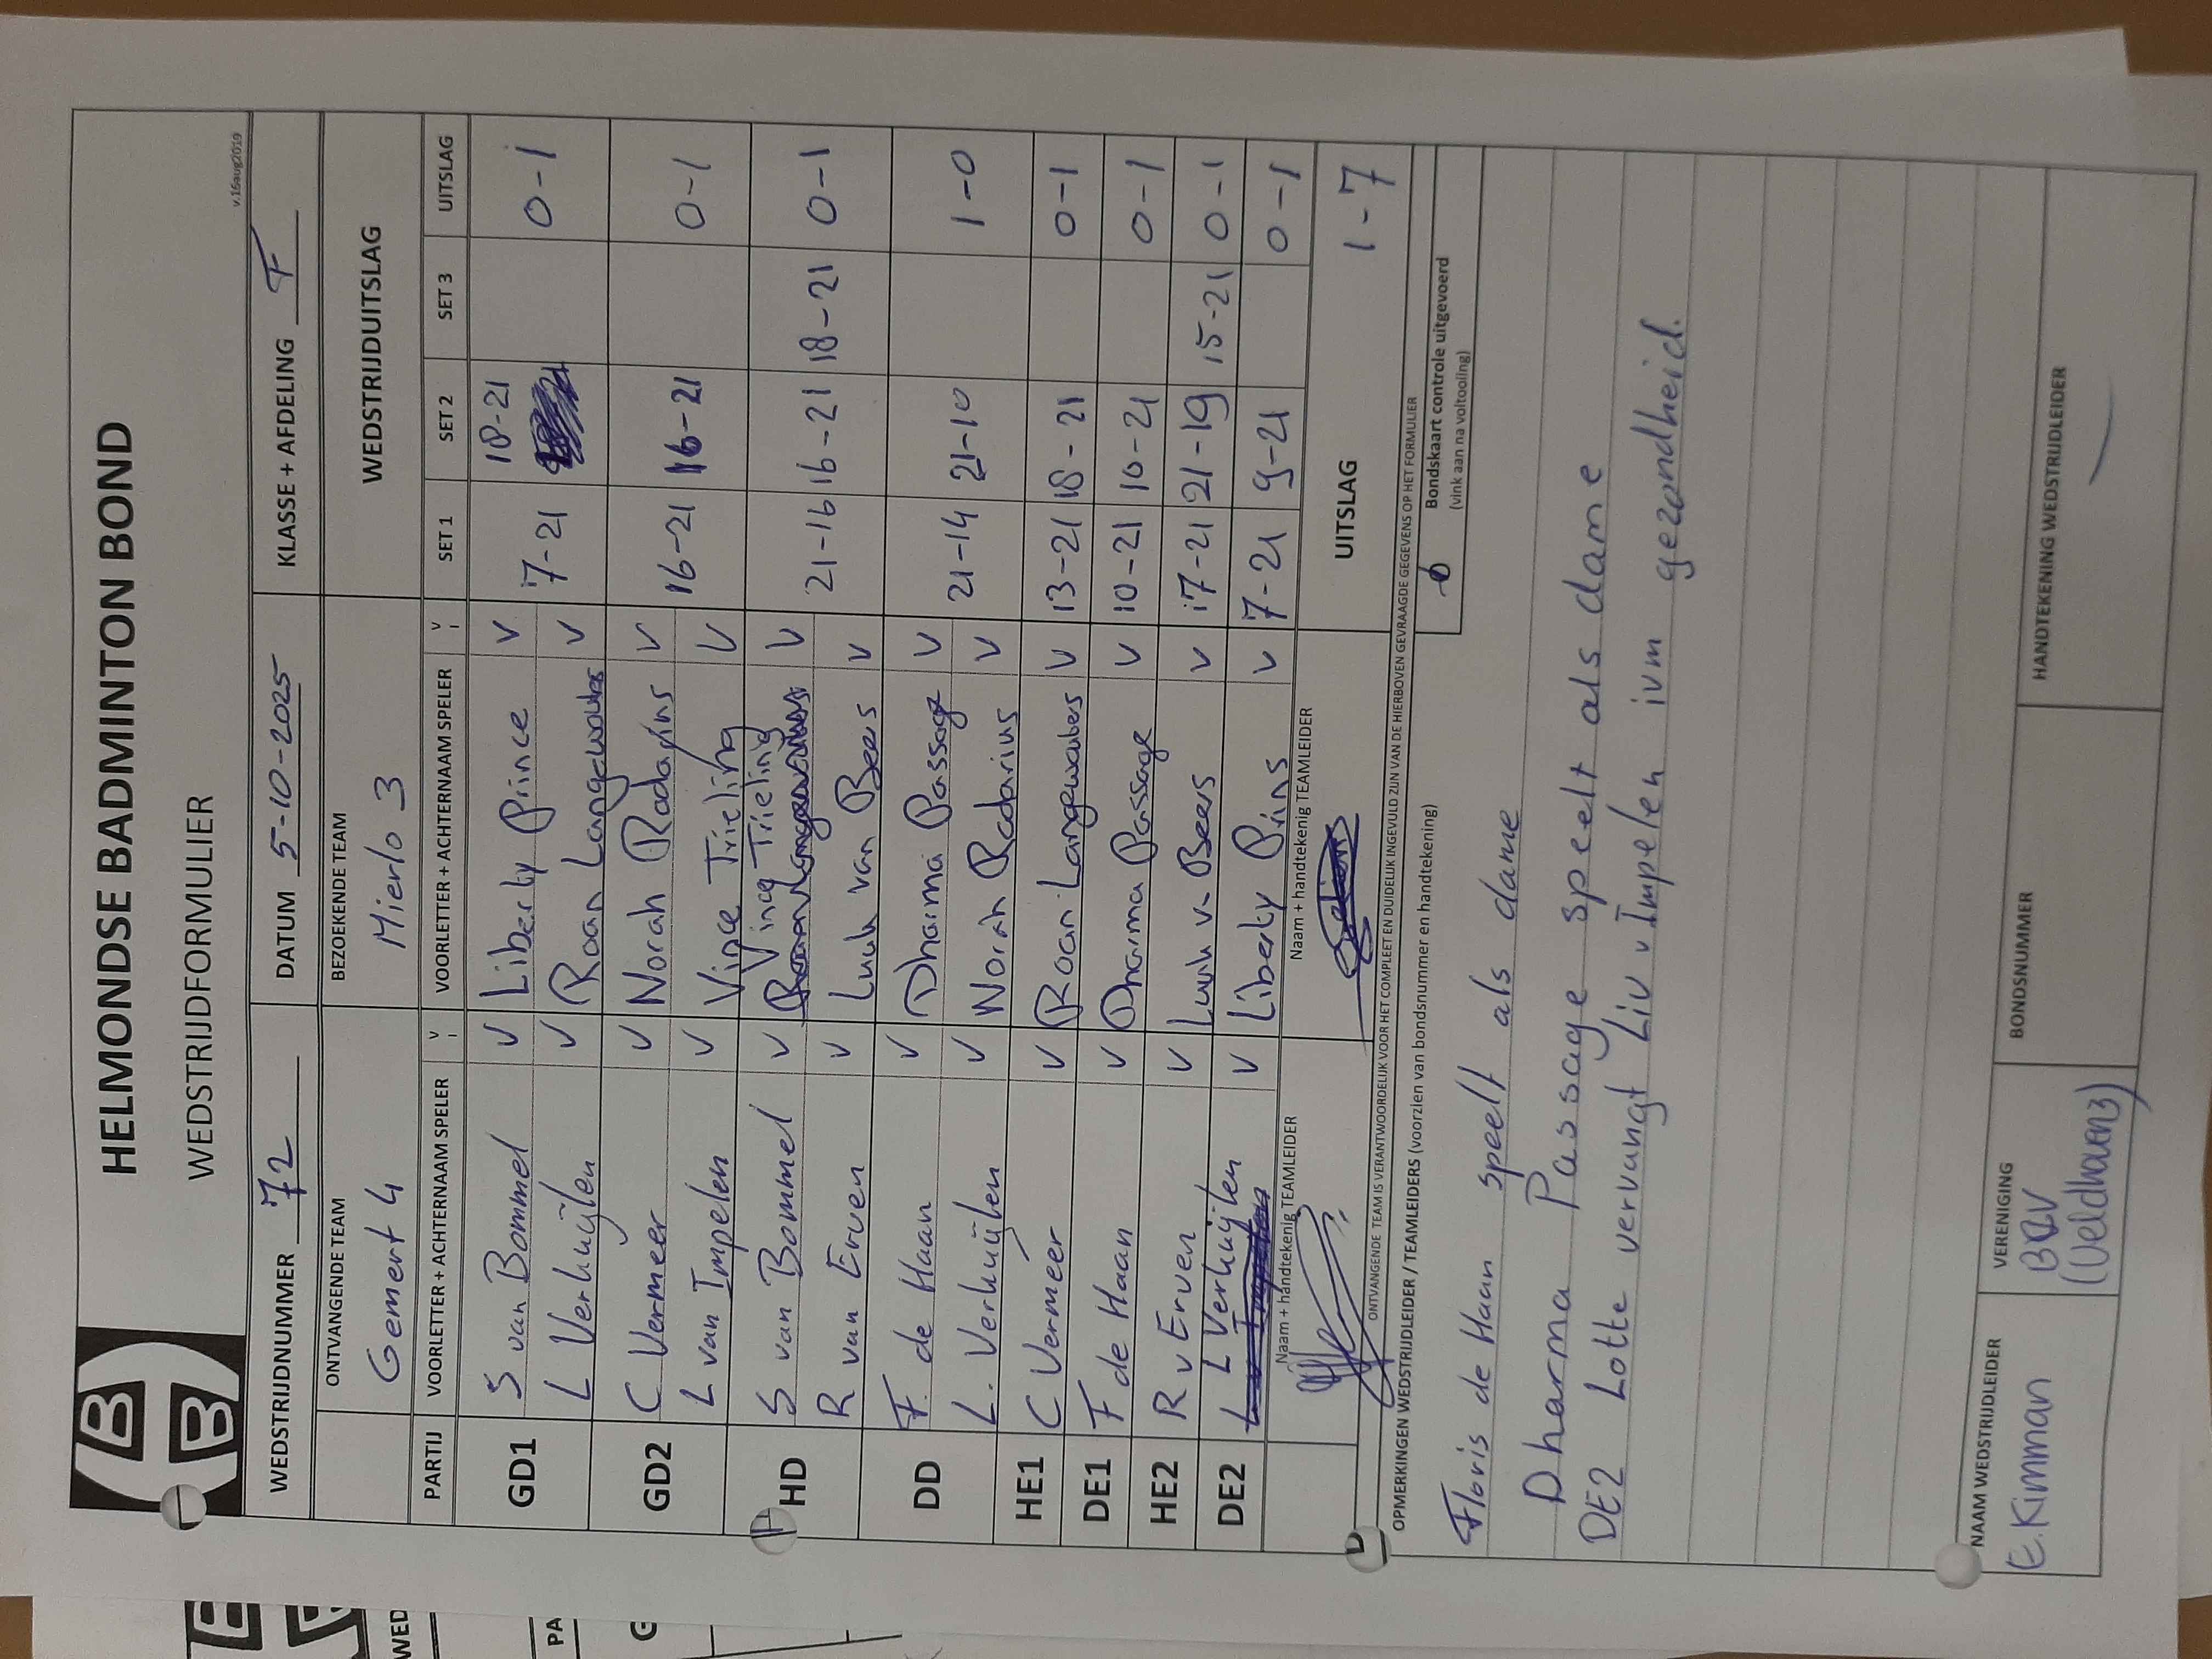 HBB
HELMONDSE BADMINTON BOND
WEDSTRIJDFORMULIER
v.16aug2019
WEDSTRIJDNUMMER 72 DATUM 5-10-2025 KLASSE + AFDELING F
ONTVANGENDE TEAM BEZOEKENDE TEAM WEDSTRIJDUITSLAG
Gemert 4 Mierlo 3
PARTIJ VOORLETTER + ACHTERNAAM SPELER V VOORLETTER + ACHTERNAAM SPELER V SET 1 SET 2 SET 3 UITSLAG
GD1 S van Bommel V Liberty Prince V 7-21 18-21 0-1
L Verhuijlen V Roan Langewouters V
GD2 C Vermeer V Norah Radarius V 16-21 16-21 0-1
L van Impelen V Vince Trieling V
HD S van Bommel V Vince Trieling V 21-16 16-21 18-21 0-1
R van Erven V Luuk van Beers V
DD F. de Haan V Dharma Passage V 21-14 21-10 1-0
L. Verhuijlen V Norah Radarius V
HE1 C Vermeer V Roan Langewouters V 13-21 18-21 0-1
DE1 F de Haan V Dharma Passage V 10-21 10-21 0-1
HE2 R v Erven V Luuk v Beers V 17-21 21-19 15-21 0-1
DE2 L Verhuijlen V Liberty Prins V 7-21 9-21 0-1
Naam + handtekenig TEAMLEIDER Naam + handtekenig TEAMLEIDER UITSLAG 1-7
ONTVANGENDE TEAM IS VERANTWOORDELIJK VOOR HET COMPLEET EN DUIDELIJK INGEVULD ZIJN VAN DE HIERBOVEN GEVRAAGDE GEGEVENS OP HET FORMULIER
OPMERKINGEN WEDSTRIJDLEIDER / TEAMLEIDERS (voorzien van bondsnummer en handtekening)
Bondskaart controle uitgevoerd
(vink aan na voltooiing)
Floris de Haan speelt als dame
Dharma Passage speelt als dame
DE2 Lotte vervangt Liv v Impelen ivm gezondheid.
NAAM WEDSTRIJDLEIDER VERENIGING BONDSNUMMER HANDTEKENING WEDSTRIJDLEIDER
E. Kimman BCV
(Veldhoven)